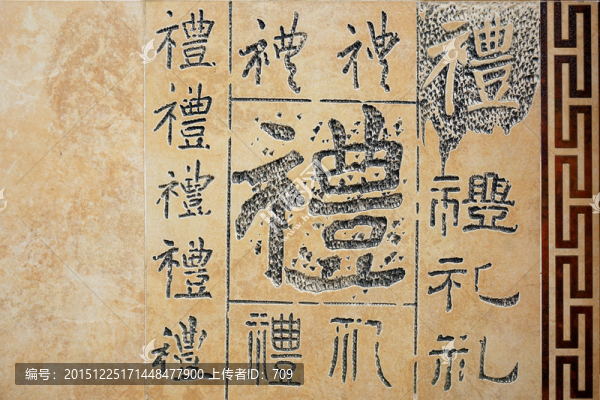 禮
禮
禮
禮
禮
禮 禮
禮
禮 礼
禮
禮
礼
礼
编号：20151225171448477900 上传者ID：709